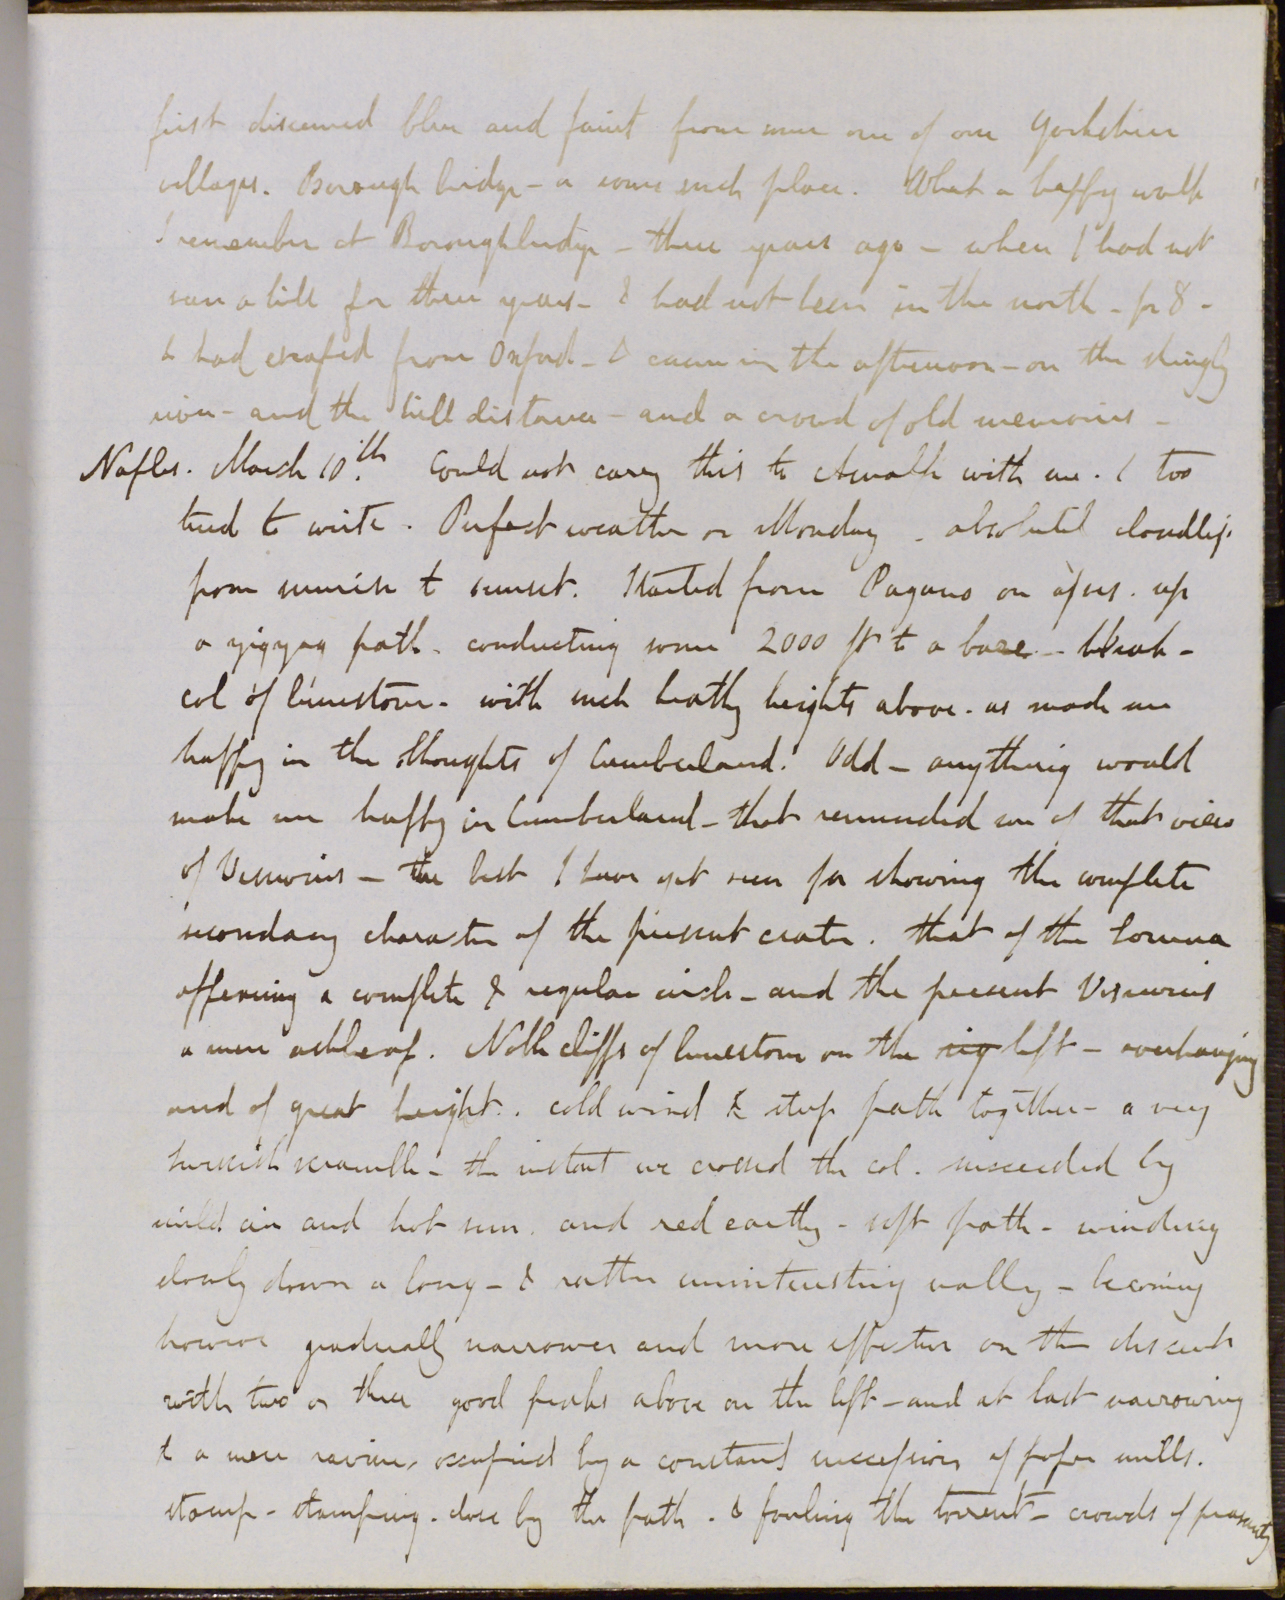 first discerned blue and faint from some one of our Yorkshire
villages. Borough bridge - or some such place. What a happy walk
I remember at Boroughbridge - three years ago - when I had not
seen a hill for three years - & had not been in the north - for 8 -
& had escaped from Oxford - & came in the afternoon - on the shingly
river - and the hill distance - and a crowd of old memories -
Naples. March 10th. Could not carry this to Amalfi with me. & too
tired to write. Perfect weather on Monday. absolutel cloudless
from sunrise to sunset. Started from Pagano on asses. up
a zigzag path. conducting some 2000 ft to a bare - bleak -
col of limestone. with such heathy heights above. as made me
happy in the thoughts of Cumberland. Odd - anything would
make me happy in Cumberland - that reminded me of that view
of Vesuvius - the best I have yet seen for showing the complete
secondary character of the present crater. that of the Somma
offering a complete & regular circle - and the present Vesuvius
a mere ashheap. Noble cliffs of limestone on the rig left - overhanging
and of great height. cold wind & steep path together - a very
scramble - the instant we crossed the col. succeeded by
mild air and hot sun. and red earthy - soft path - winding
slowly down a long - & rather uninteresting valley - becoming
however gradually narrower and more effective on the descent
with two or three good peaks above on the left - and at last narrowing
to a mere ravine, occupied by a constant succession of paper mills.
stamp - stamping. close by the path. & fouling the torrent - crowds of peasantry